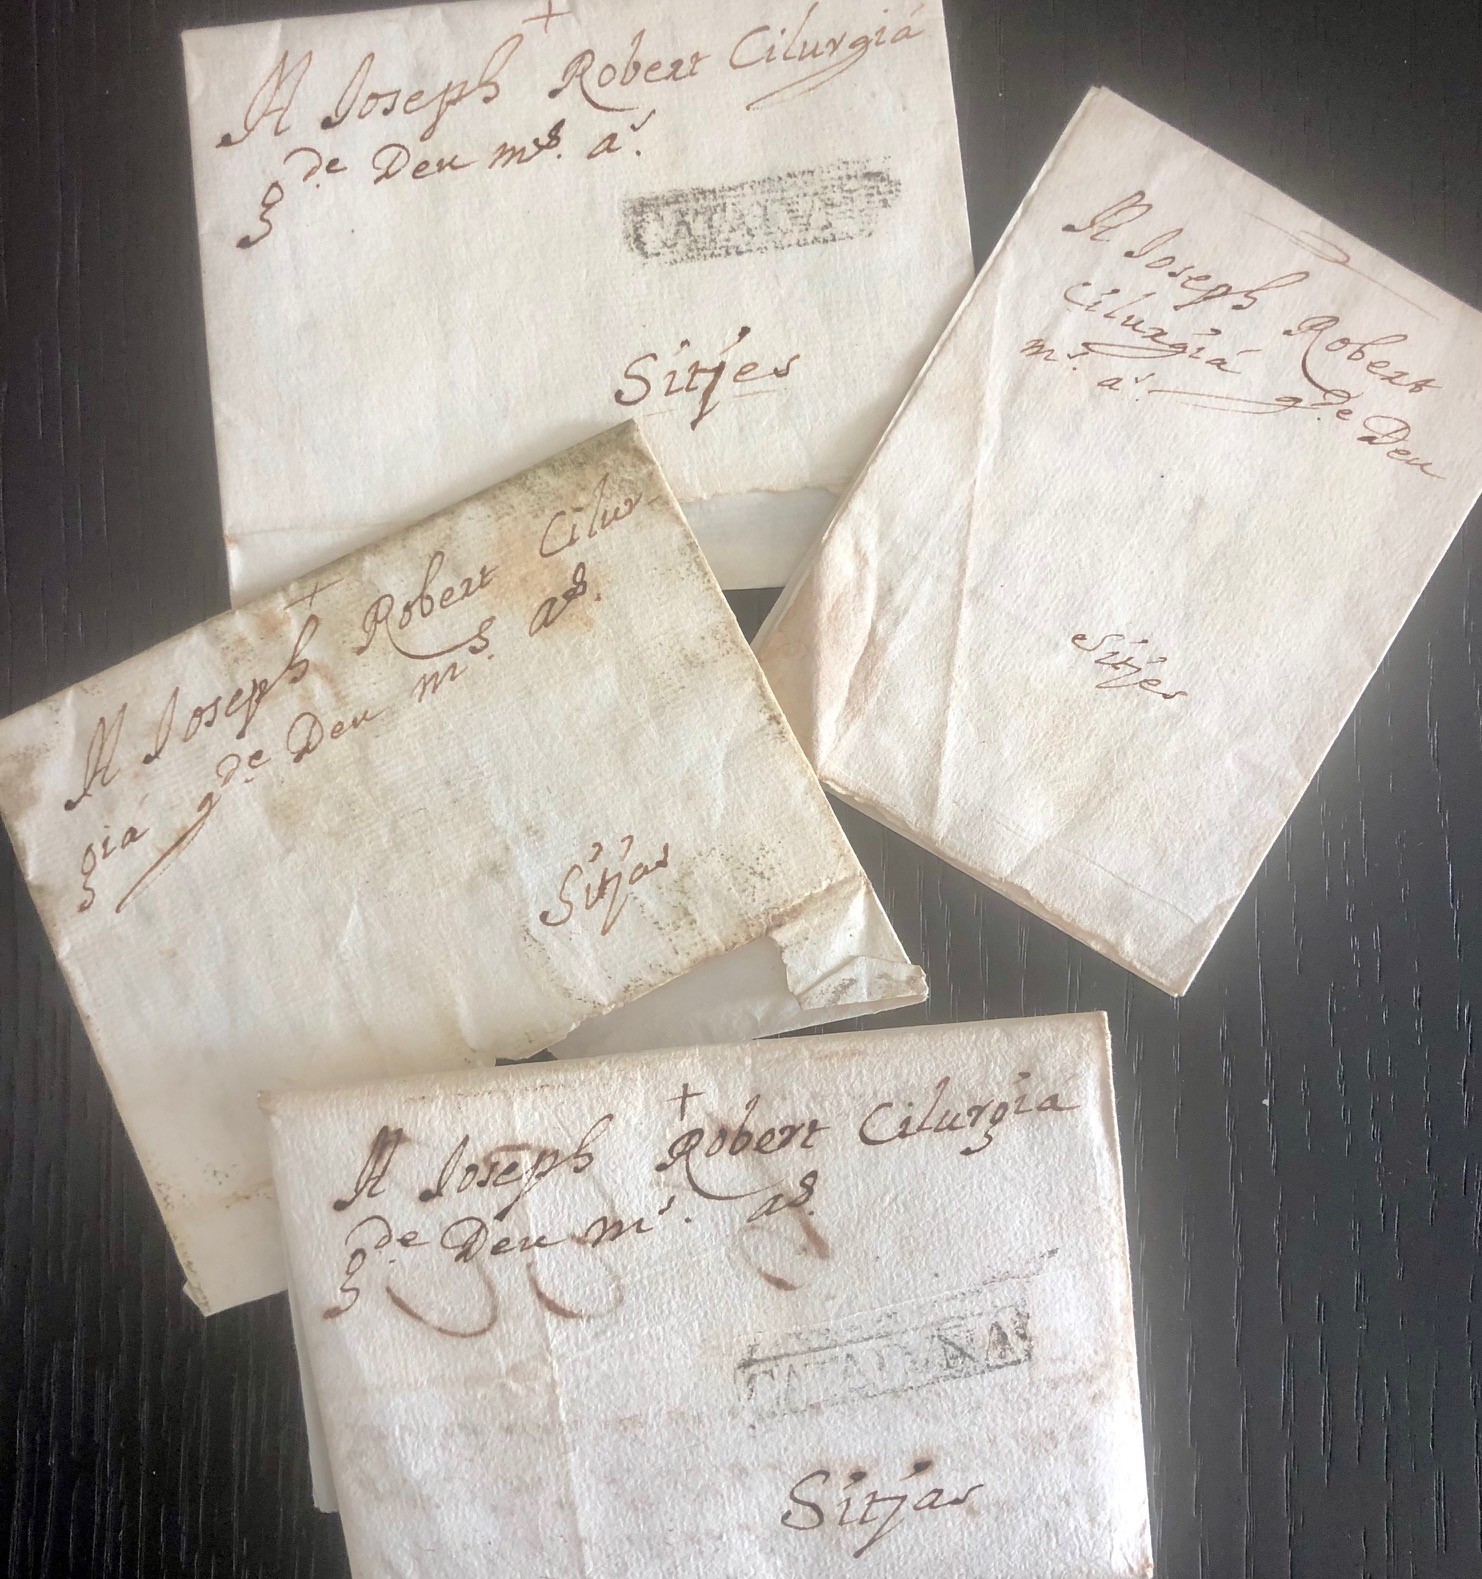 A Joseph Robert Cilurgiá
g.de Deu ms. as.
CATALUÑA
Sitjes
A Joseph Robert
Cilurgiá g.de Deu
ms. as.
Sitjes
A Joseph Robert Cilur-
giá g.de Deu ms. as.
Sitjas
A Joseph Robert Cilurgiá
g.de Deu ms. as.
CATALUÑA
Sitjas